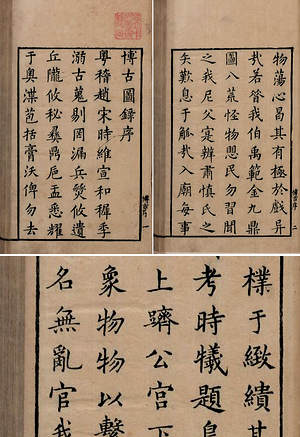 博古圖錄序
粵稽趙宋時維宣和穉季
溺古蒐剔罔漏兵燹攸遺
丘隴攸秘彝鼎卮盂悉耀
于奧渫括膏沃俾勿去
博古序 一
物蕩心曷其有極於戲異
哉若昔我伯禹範金九鼎
圖八荒怪物思民勿習聞
之我尼父寔辨肅慎氏之
矢歎息于觚哉入廟每事
博古序 二
樸于緻繢其
考時犧題
上躋公宮下
象物物以繫
名無亂官我